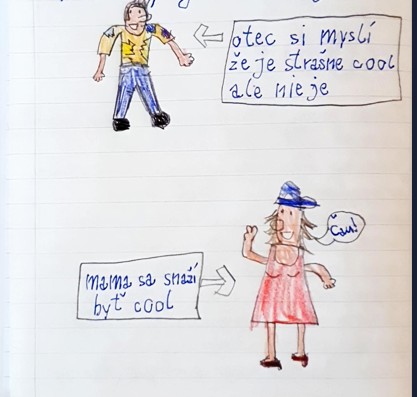 otec si myslí
že je strašne cool
ale nie je
Čau!
mama sa snaží
byť cool